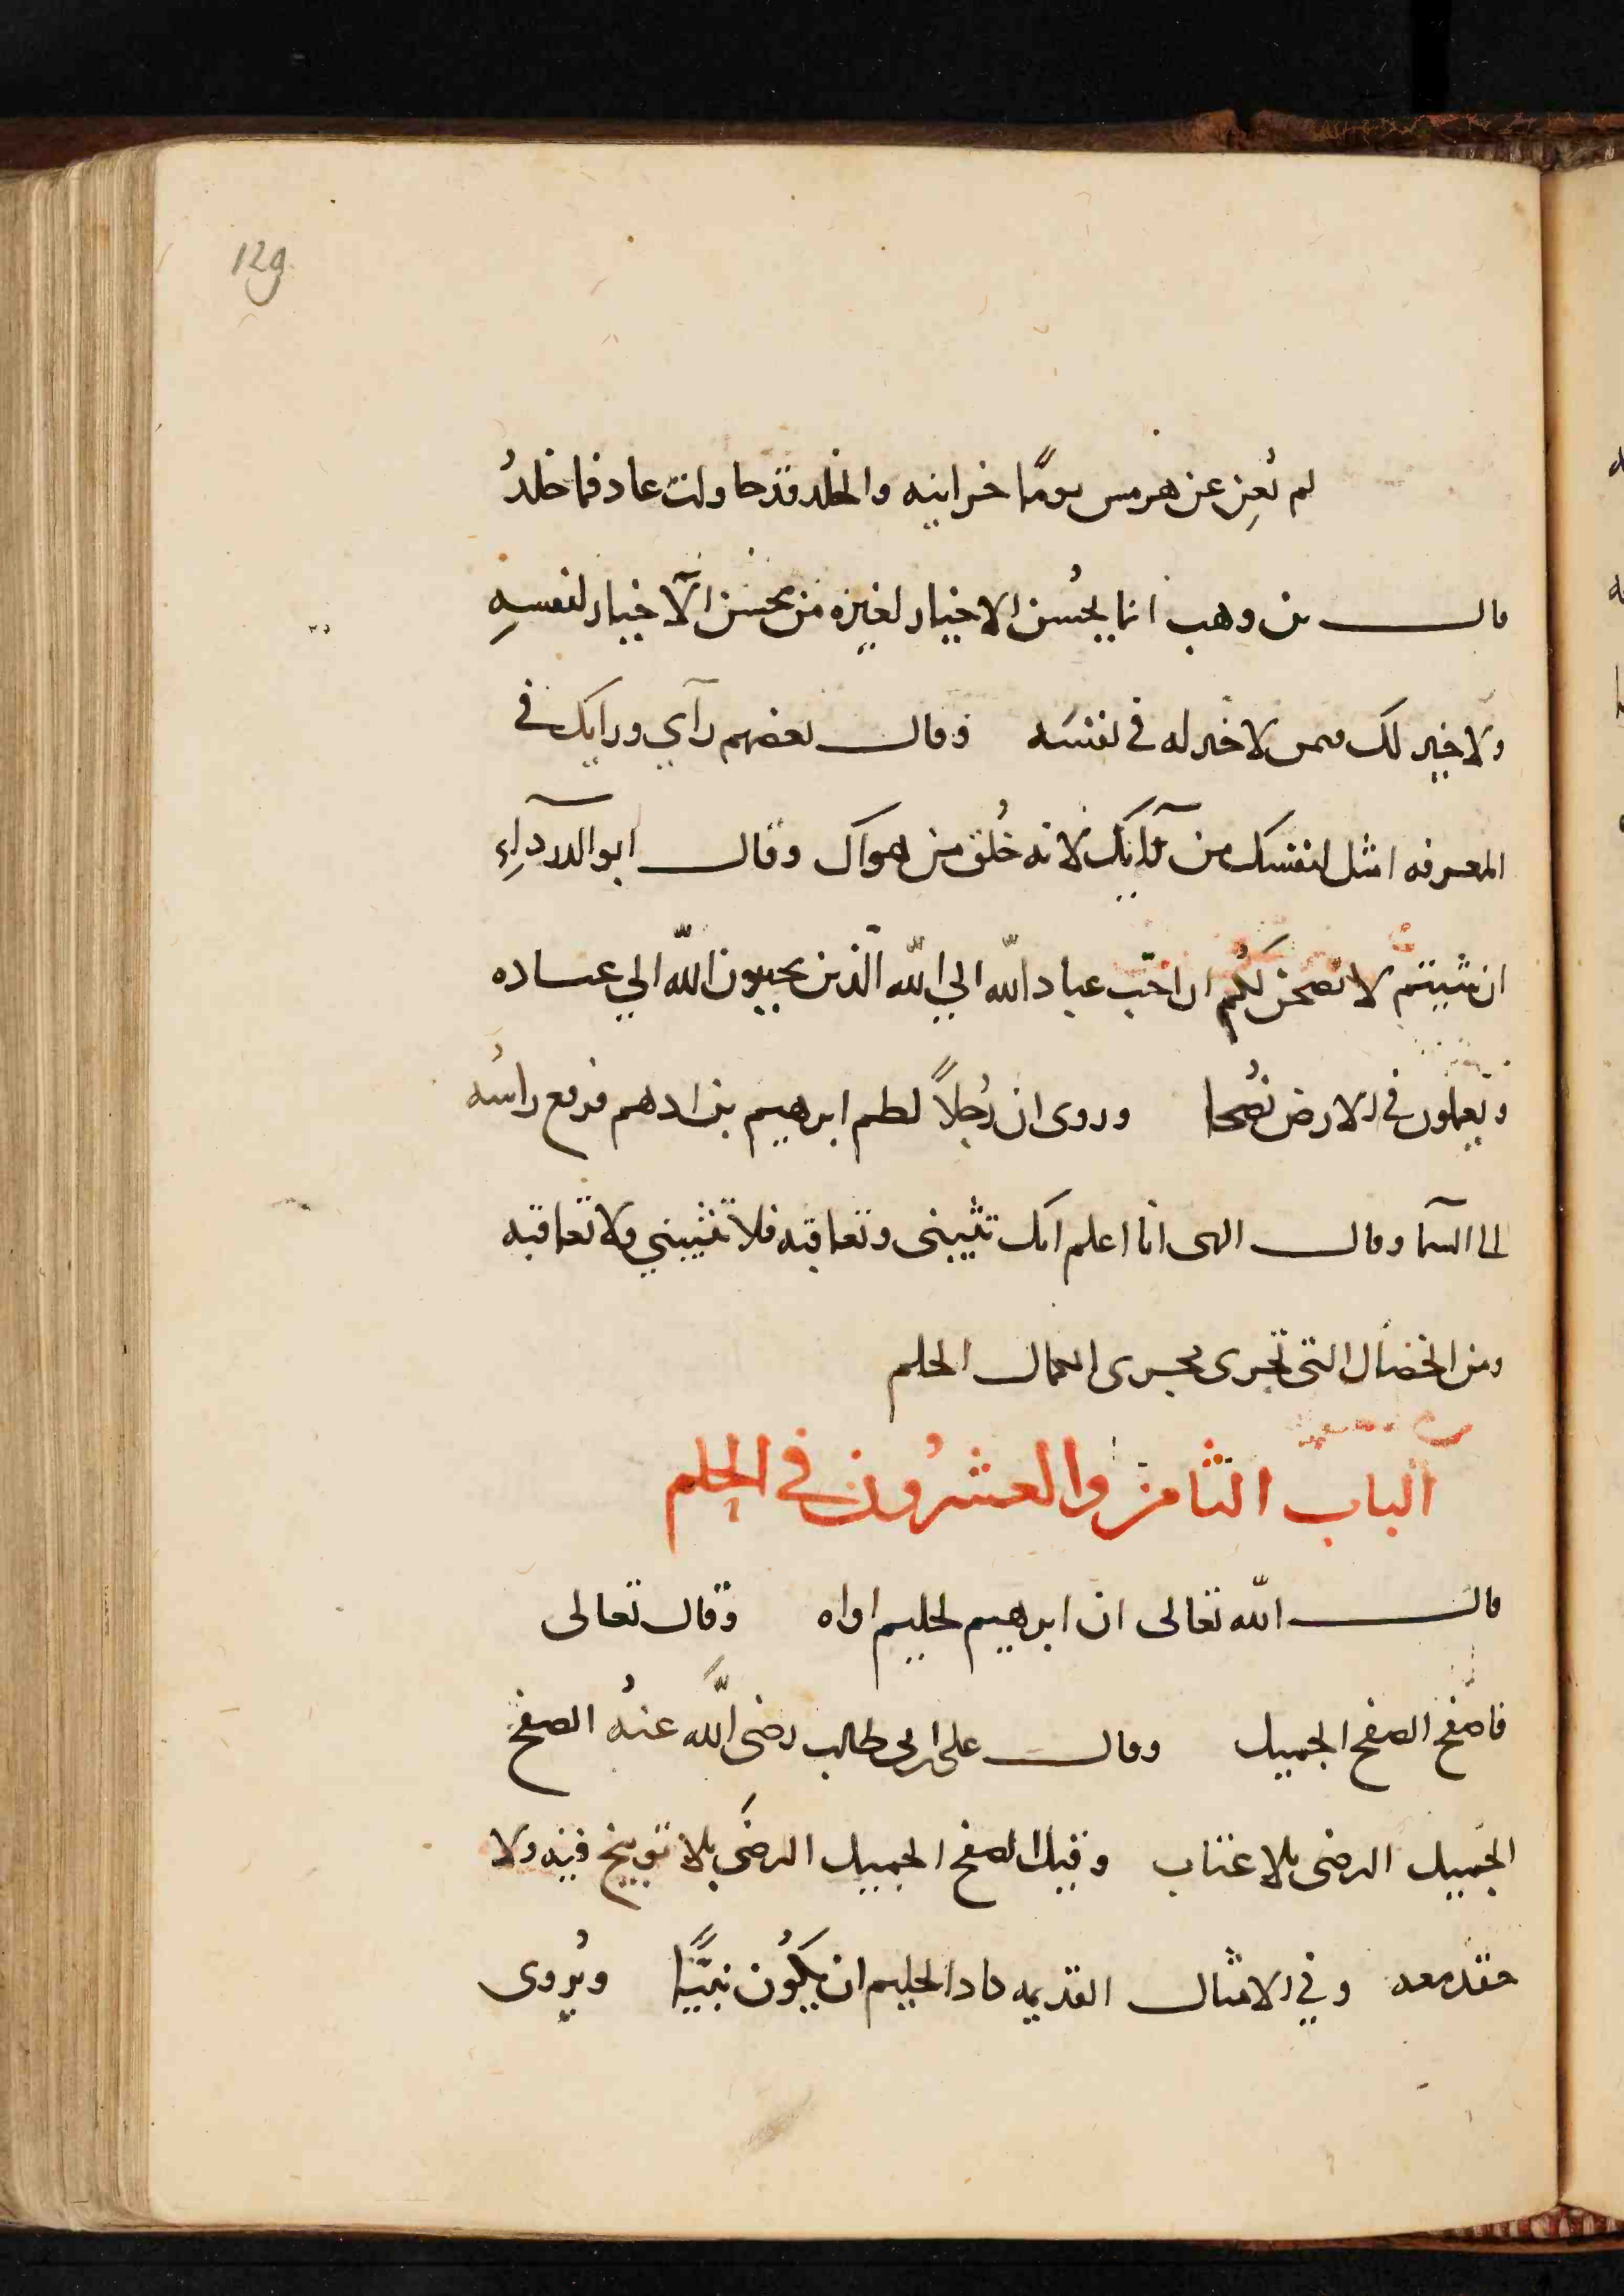 129
لم تُغِن عن هرمس يومًا خزاينه والخلد قد حاولت عاد فما خلدُ
قال بن وهب انما يحُسن الاختيار لغيره من يحسن الاختيار لنفسهِ
ولا خير لك فيمن لا خير له في نفسَه وقال بعضهم رآي ورايك في
المعرفه امثل لنفسك من رآيك لانه خُلق من هواك وقال ابو الدردآءِ
ان شيتم لانصحن لكُم ان احبّ عباد اللّه الي اللّه الّذين يحببون اللّه الي عباده
ويَعملون في الارض نُصحا وروى ان رجُلاً لطم ابرهيم بن ادهم فرفع راسُه
الى السمآ وقال الهى انا اعلم انك تثيبنى وتعاقبه فلا تثيبني ولا تعاقبه
ومن الخصال التى تجرى مجرى الجمال الحلم
الباب الثامن والعشرُون في الحلم
قال اللّه تعالى ان ابرهيم لحليم اواه وقال تعالى
فاصفح الصفح الجميل وقال على ابن ابى طالب رضى اللَّه عنهُ الصفح
الجَميل الرضى بلا عتاب وقيل الصفح الجميل الرضَى بلا توبيخ فيه ولا
حقد معه وفي الامثال القديمه كاد الحليم ان يكُون نبيًّا ويُروى